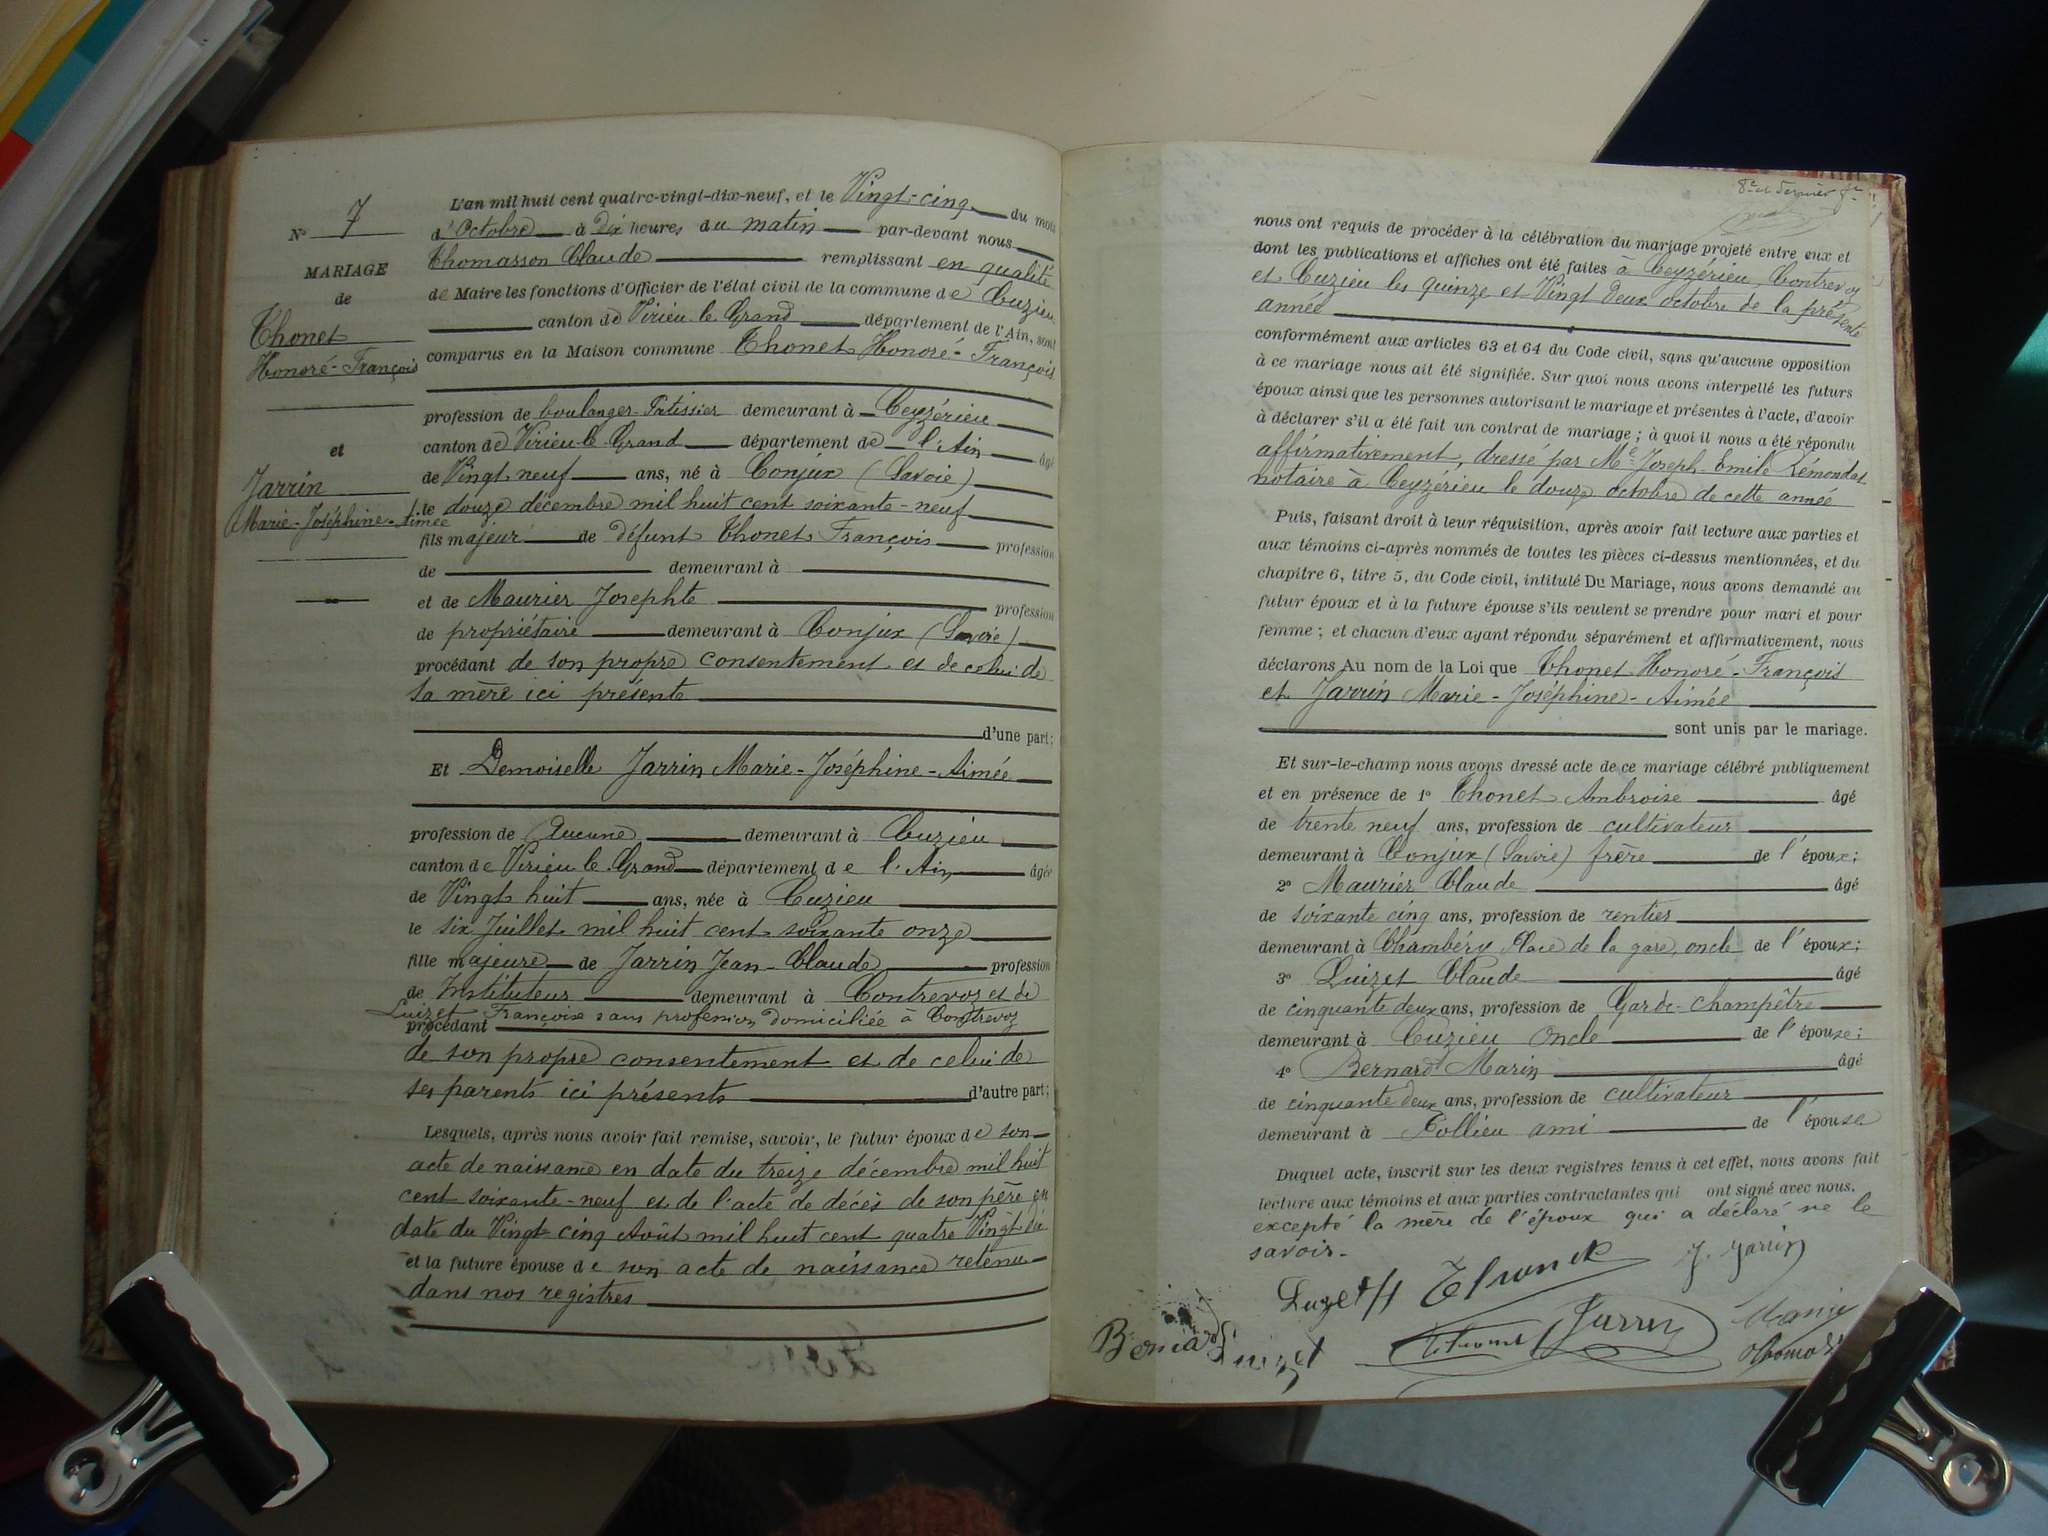 N° 7
MARIAGE
de
Thonet
Honoré-François
et
Jarrin
Marie-Joséphine-Aimée
L'an mil huit cent quatre-vingt-dix-neuf, et le Vingt-cinq du mois
d'Octobre à Dix heures du matin par-devant nous
Thomasson Claude remplissant en qualité
de Maire les fonctions d'Officier de l'état civil de la commune de Cuzieu
canton de Virieu le Grand département de l'Ain, sont
comparus en la Maison commune Thonet Honoré-François
profession de boulanger-Patissier demeurant à Ceyzérieu
canton de Virieu-le-Grand département de l'Ain âgé
de Vingt neuf ans, né à Conjux (Savoie)
le douze décembre mil huit cent soixante-neuf
fils majeur de défunt Thonet François profession
de demeurant à
et de Maurier Josephte profession
de propriétaire demeurant à Conjux (Savoie)
procédant de son propre consentement et de celui de
sa mère ici présente
d'une part;
Et Demoiselle Jarrin Marie-Joséphine-Aimée
profession de Aucune demeurant à Cuzieu
canton de Virieu le Grand département de l'Ain âgée
de Vingt huit ans, née à Cuzieu
le six Juillet mil huit cent soixante onze
fille majeure de Jarrin Jean-Claude profession
de Instituteur demeurant à Contrevoz et de
Luizet Françoise sans profession domiciliée à Contrevoz
procédant
de son propre consentement et de celui de
ses parents ici présents d'autre part;
Lesquels, après nous avoir fait remise, savoir, le futur époux de son
acte de naissance en date du treize décembre mil huit
cent soixante-neuf et de l'acte de décès de son père en
date du Vingt cinq Août mil huit cent quatre Vingt dix
et la future épouse de son acte de naissance retenu
dans nos registres
8e et dernier ft
nous ont requis de procéder à la célébration du mariage projeté entre eux et
dont les publications et affiches ont été faites à Ceyzérieu, Contrevoz
et Cuzieu les quinze et Vingt Deux octobre de la présente
année
conformément aux articles 63 et 64 du Code civil, sans qu'aucune opposition
à ce mariage nous ait été signifiée. Sur quoi nous avons interpellé les futurs
époux ainsi que les personnes autorisant le mariage et présentes à l'acte, d'avoir
à déclarer s'il a été fait un contrat de mariage; à quoi il nous a été répondu
affirmativement, dressé par Me Joseph-Emile Rémondat
notaire à Ceyzérieu le douze octobre de cette année
Puis, faisant droit à leur réquisition, après avoir fait lecture aux parties et
aux témoins ci-après nommés de toutes les pièces ci-dessus mentionnées, et du
chapitre 6, titre 5, du Code civil, intitulé Du Mariage, nous avons demandé au
futur époux et à la future épouse s'ils veulent se prendre pour mari et pour
femme; et chacun d'eux ayant répondu séparément et affirmativement, nous
déclarons Au nom de la Loi que Thonet Honoré-François
et Jarrin Marie-Joséphine-Aimée
sont unis par le mariage.
Et sur-le-champ nous avons dressé acte de ce mariage célébré publiquement
et en présence de 1° Thonet Ambroise âgé
de trente neuf ans, profession de cultivateur
demeurant à Conjux (Savoie) frère de l'époux;
2° Maurier Claude âgé
de soixante cinq ans, profession de rentier
demeurant à Chambéry Place de la gare, oncle de l'époux;
3° Luizet Claude âgé
de cinquante deux ans, profession de Garde-champêtre
demeurant à Cuzieu oncle de l'épouse;
4° Bernard Marin âgé
de cinquante deux ans, profession de cultivateur
demeurant à Rollieu ami de l'épouse
Duquel acte, inscrit sur les deux registres tenus à cet effet, nous avons fait
lecture aux témoins et aux parties contractantes qui ont signé avec nous.
excepté la mère de l'époux qui a déclaré ne le
savoir.
J. Jarrin
Bernard
Luizet
Jarrin